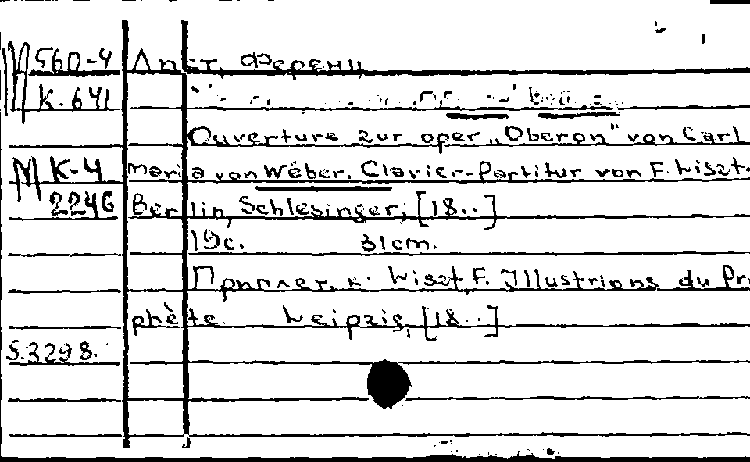 М 560-4 Лист, Ференц
К. 641
Ouverture zur oper „Oberon" von Carl
М К-4 Maria von Weber. Clavier-Partitur von F. Liszt.
2246 Berlin, Schlesinger, [18..]
19с. 31cm.
Приплет. к: Liszt, F. Illustrions du Pro
phète. Leipzig, [18..]
5.3298.